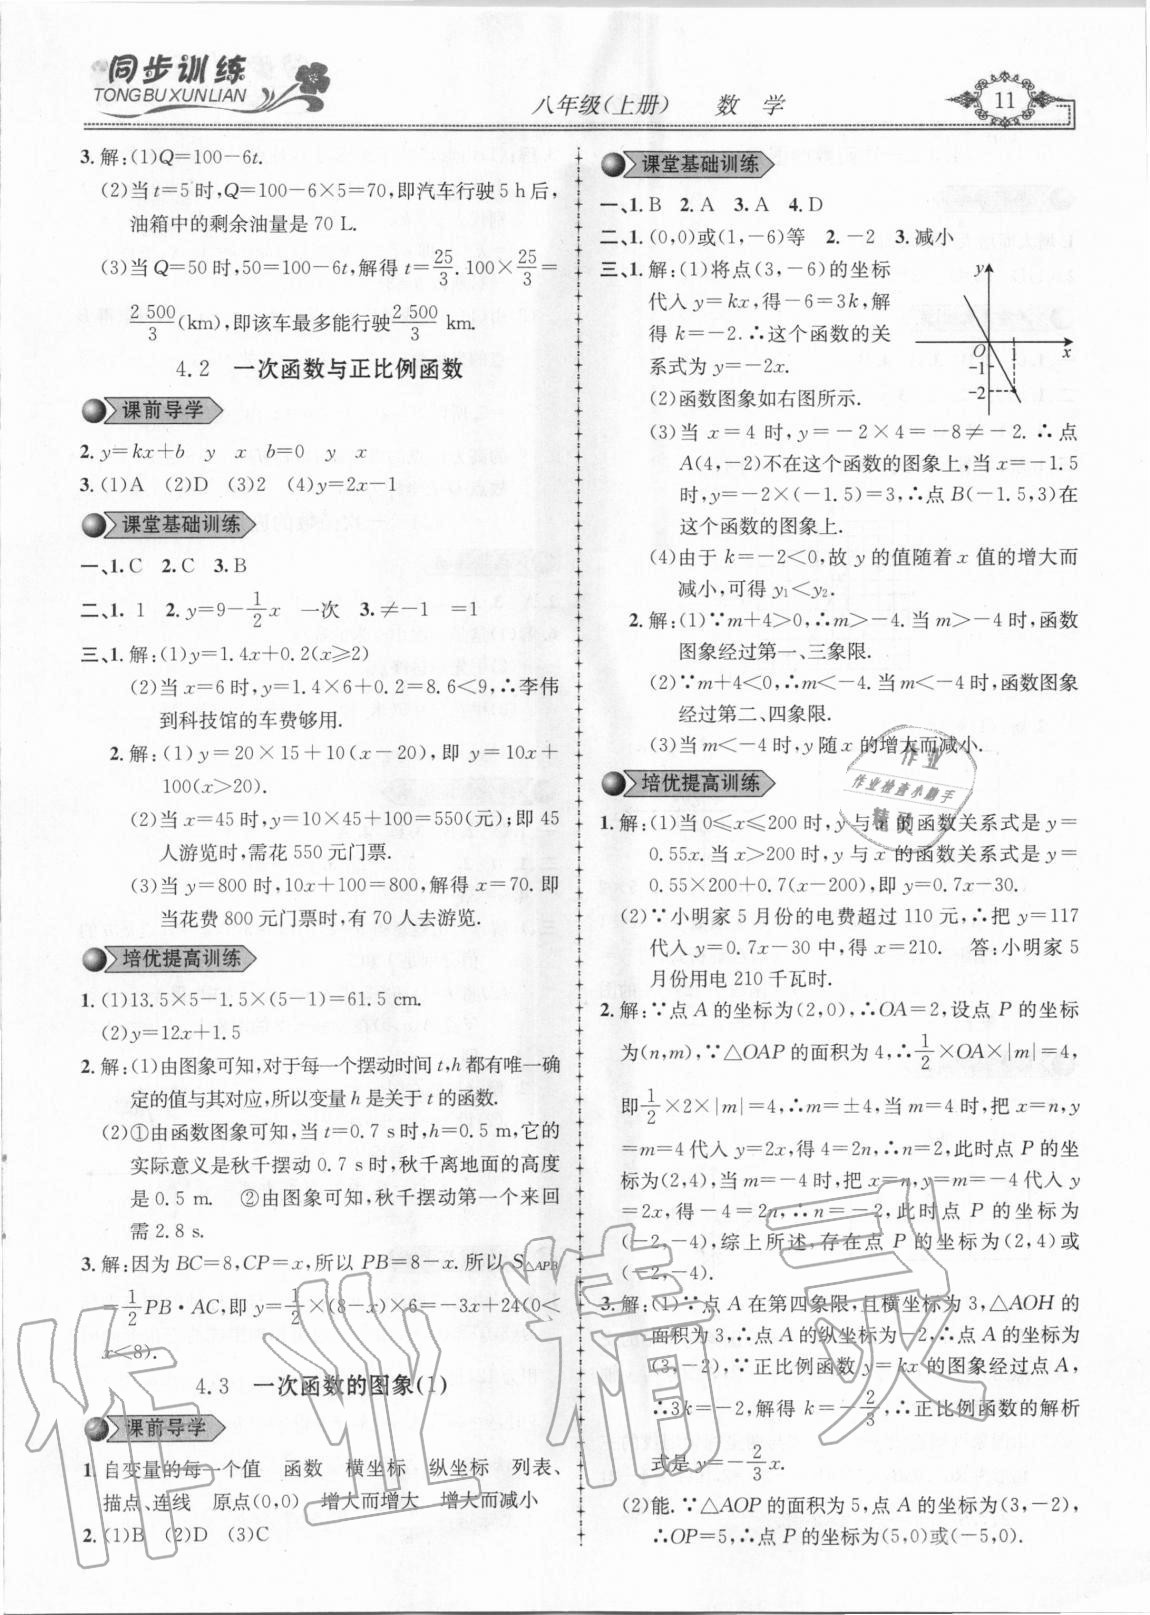 同步训练
TONGBUXUNLIAN
八年级(上册) 数学
11
3.解:(1)Q=100-6t.
(2)当t=5时,Q=100-6×5=70,即汽车行驶5 h后,
油箱中的剩余油量是70 L.
(3)当Q=50时,50=100-6t,解得t=25/3.100×25/3=
2 500/3(km),即该车最多能行驶2 500/3 km.
4.2 一次函数与正比例函数
课前导学
2.y=kx+b y x b=0 y x
3.(1)A (2)D (3)2 (4)y=2x-1
课堂基础训练
一、1.C 2.C 3.B
二、1. 1 2.y=9-1/2x 一次 3.≠-1 =1
三、1.解:(1)y=1.4x+0.2(x≥2)
(2)当x=6时,y=1.4×6+0.2=8.6<9,∴李伟
到科技馆的车费够用.
2.解:(1)y=20×15+10(x-20),即y=10x+
100(x>20).
(2)当x=45时,y=10×45+100=550(元);即45
人游览时,需花550元门票.
(3)当y=800时,10x+100=800,解得x=70.即
当花费800元门票时,有70人去游览.
培优提高训练
1.(1)13.5×5-1.5×(5-1)=61.5 cm.
(2)y=12x+1.5
2.解:(1)由图象可知,对于每一个摆动时间t,h都有唯一确
定的值与其对应,所以变量h是关于t的函数.
(2)①由函数图象可知,当t=0.7 s时,h=0.5 m,它的
实际意义是秋千摆动0.7 s时,秋千离地面的高度
是0.5 m. ②由图象可知,秋千摆动第一个来回
需2.8 s.
3.解:因为BC=8,CP=x,所以PB=8-x.所以S△APB
=1/2PB·AC,即y=1/2×(8-x)×6=-3x+24(0<
x<8).
4.3 一次函数的图象(1)
课前导学
1.自变量的每一个值 函数 横坐标 纵坐标 列表、
描点、连线 原点(0,0) 增大而增大 增大而减小
2.(1)B (2)D (3)C
课堂基础训练
一、1.B 2.A 3.A 4.D
二、1.(0,0)或(1,-6)等 2.-2 3.减小
三、1.解:(1)将点(3,-6)的坐标
代入y=kx,得-6=3k,解
得k=-2.∴这个函数的关
系式为y=-2x.
(2)函数图象如右图所示.
y
O 1 x
-1
-2
(3)当x=4时,y=-2×4=-8≠-2.∴点
A(4,-2)不在这个函数的图象上,当x=-1.5
时,y=-2×(-1.5)=3,∴点B(-1.5,3)在
这个函数的图象上.
(4)由于k=-2<0,故y的值随着x值的增大而
减小,可得y₁<y₂.
2.解:(1)∵m+4>0,∴m>-4.当m>-4时,函数
图象经过第一、三象限.
(2)∵m+4<0,∴m<-4.当m<-4时,函数图象
经过第二、四象限.
(3)当m<-4时,y随x的增大而减小.
培优提高训练
1.解:(1)当0≤x≤200时,y与x的函数关系式是y=
0.55x.当x>200时,y与x的函数关系式是y=
0.55×200+0.7(x-200),即y=0.7x-30.
(2)∵小明家5月份的电费超过110元,∴把y=117
代入y=0.7x-30中,得x=210. 答:小明家5
月份用电210千瓦时.
2.解:∵点A的坐标为(2,0),∴OA=2,设点P的坐标
为(n,m),∵△OAP的面积为4,∴1/2×OA×|m|=4,
即1/2×2×|m|=4,∴m=±4,当m=4时,把x=n,y
=m=4代入y=2x,得4=2n,∴n=2,此时点P的坐
标为(2,4),当m=-4时,把x=n,y=m=-4代入y
=2x,得-4=2n,∴n=-2,此时点P的坐标为
(-2,-4),综上所述,存在点P的坐标为(2,4)或
(-2,-4).
3.解:(1)∵点A在第四象限,且横坐标为3,△AOH的
面积为3,∴点A的纵坐标为-2,∴点A的坐标为
(3,-2),∵正比例函数y=kx的图象经过点A,
∴3k=-2,解得k=-2/3,∴正比例函数的解析
式是y=-2/3x.
(2)能.∵△AOP的面积为5,点A的坐标为(3,-2),
∴OP=5,∴点P的坐标为(5,0)或(-5,0).
作业
作业检查小助手
精灵
作业精灵